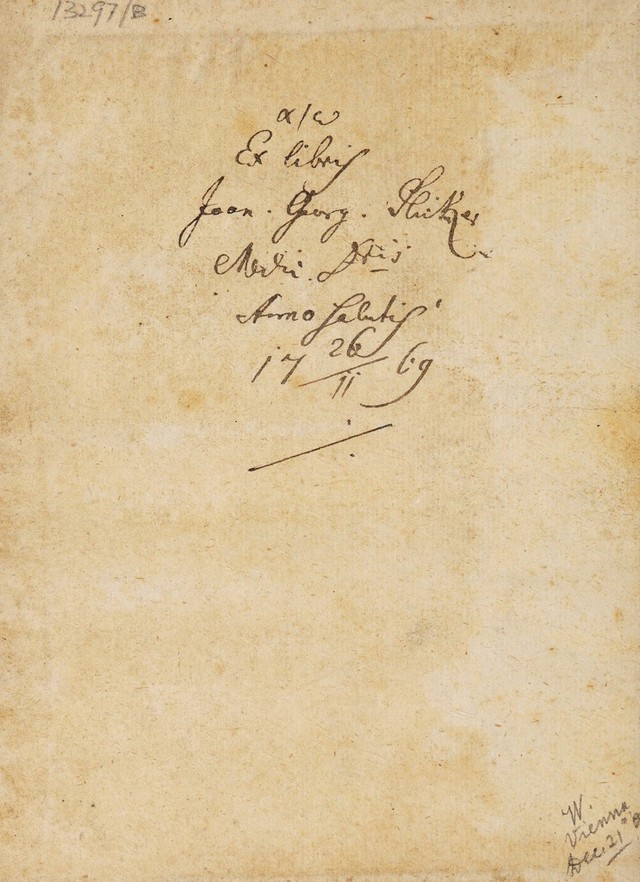 13297/B
α/ω
Ex libris
Joan. Georg.
Medic. Dris
Anno Salutis
17 26/11 69
W.
Vienna
Dec. 21